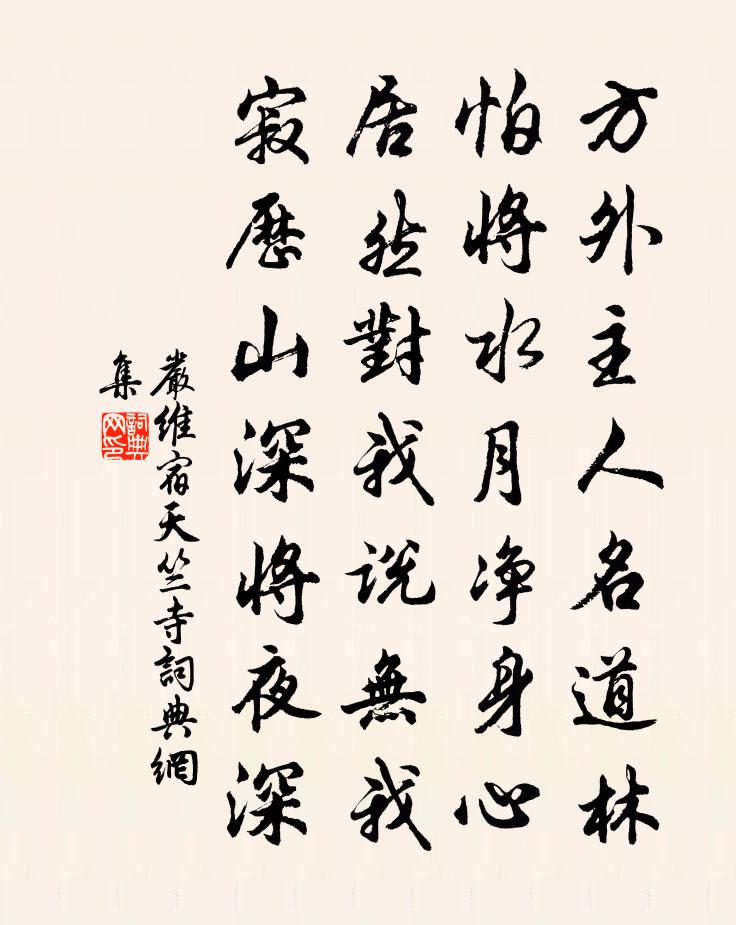 方外主人名道林
怕將水月净身心
居然對我說無我
寂歷山深將夜深
嚴維宿天竺寺詞典網
集
詞典
网印